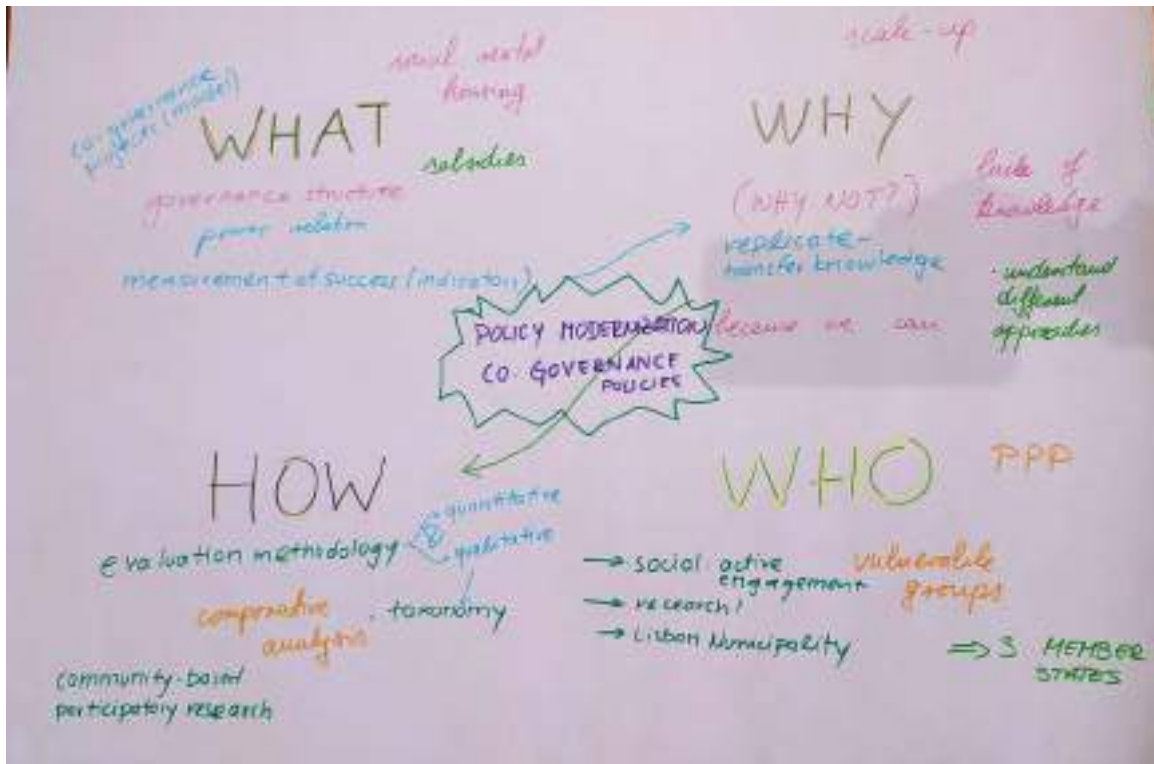 co-governance
projects (model)
social rental
housing
WHAT
subsidies
governance structure
power relation
measurement of success (indicators)
scale-up
WHY
(WHY NOT?)
lack of
knowledge
replicate-
transfer knowledge
because we can
• understand
different
approaches
POLICY MODERNIZATION
CO GOVERNANCE
POLICIES
HOW
evaluation methodology
quantitative
&
qualitative
comparative
analysis
• taxonomy
community-based
participatory research
WHO
PPP
→ social active
engagement
vulnerable
groups
→ research
→ Lisbon Municipality
⇒ 3 MEMBER
STATES